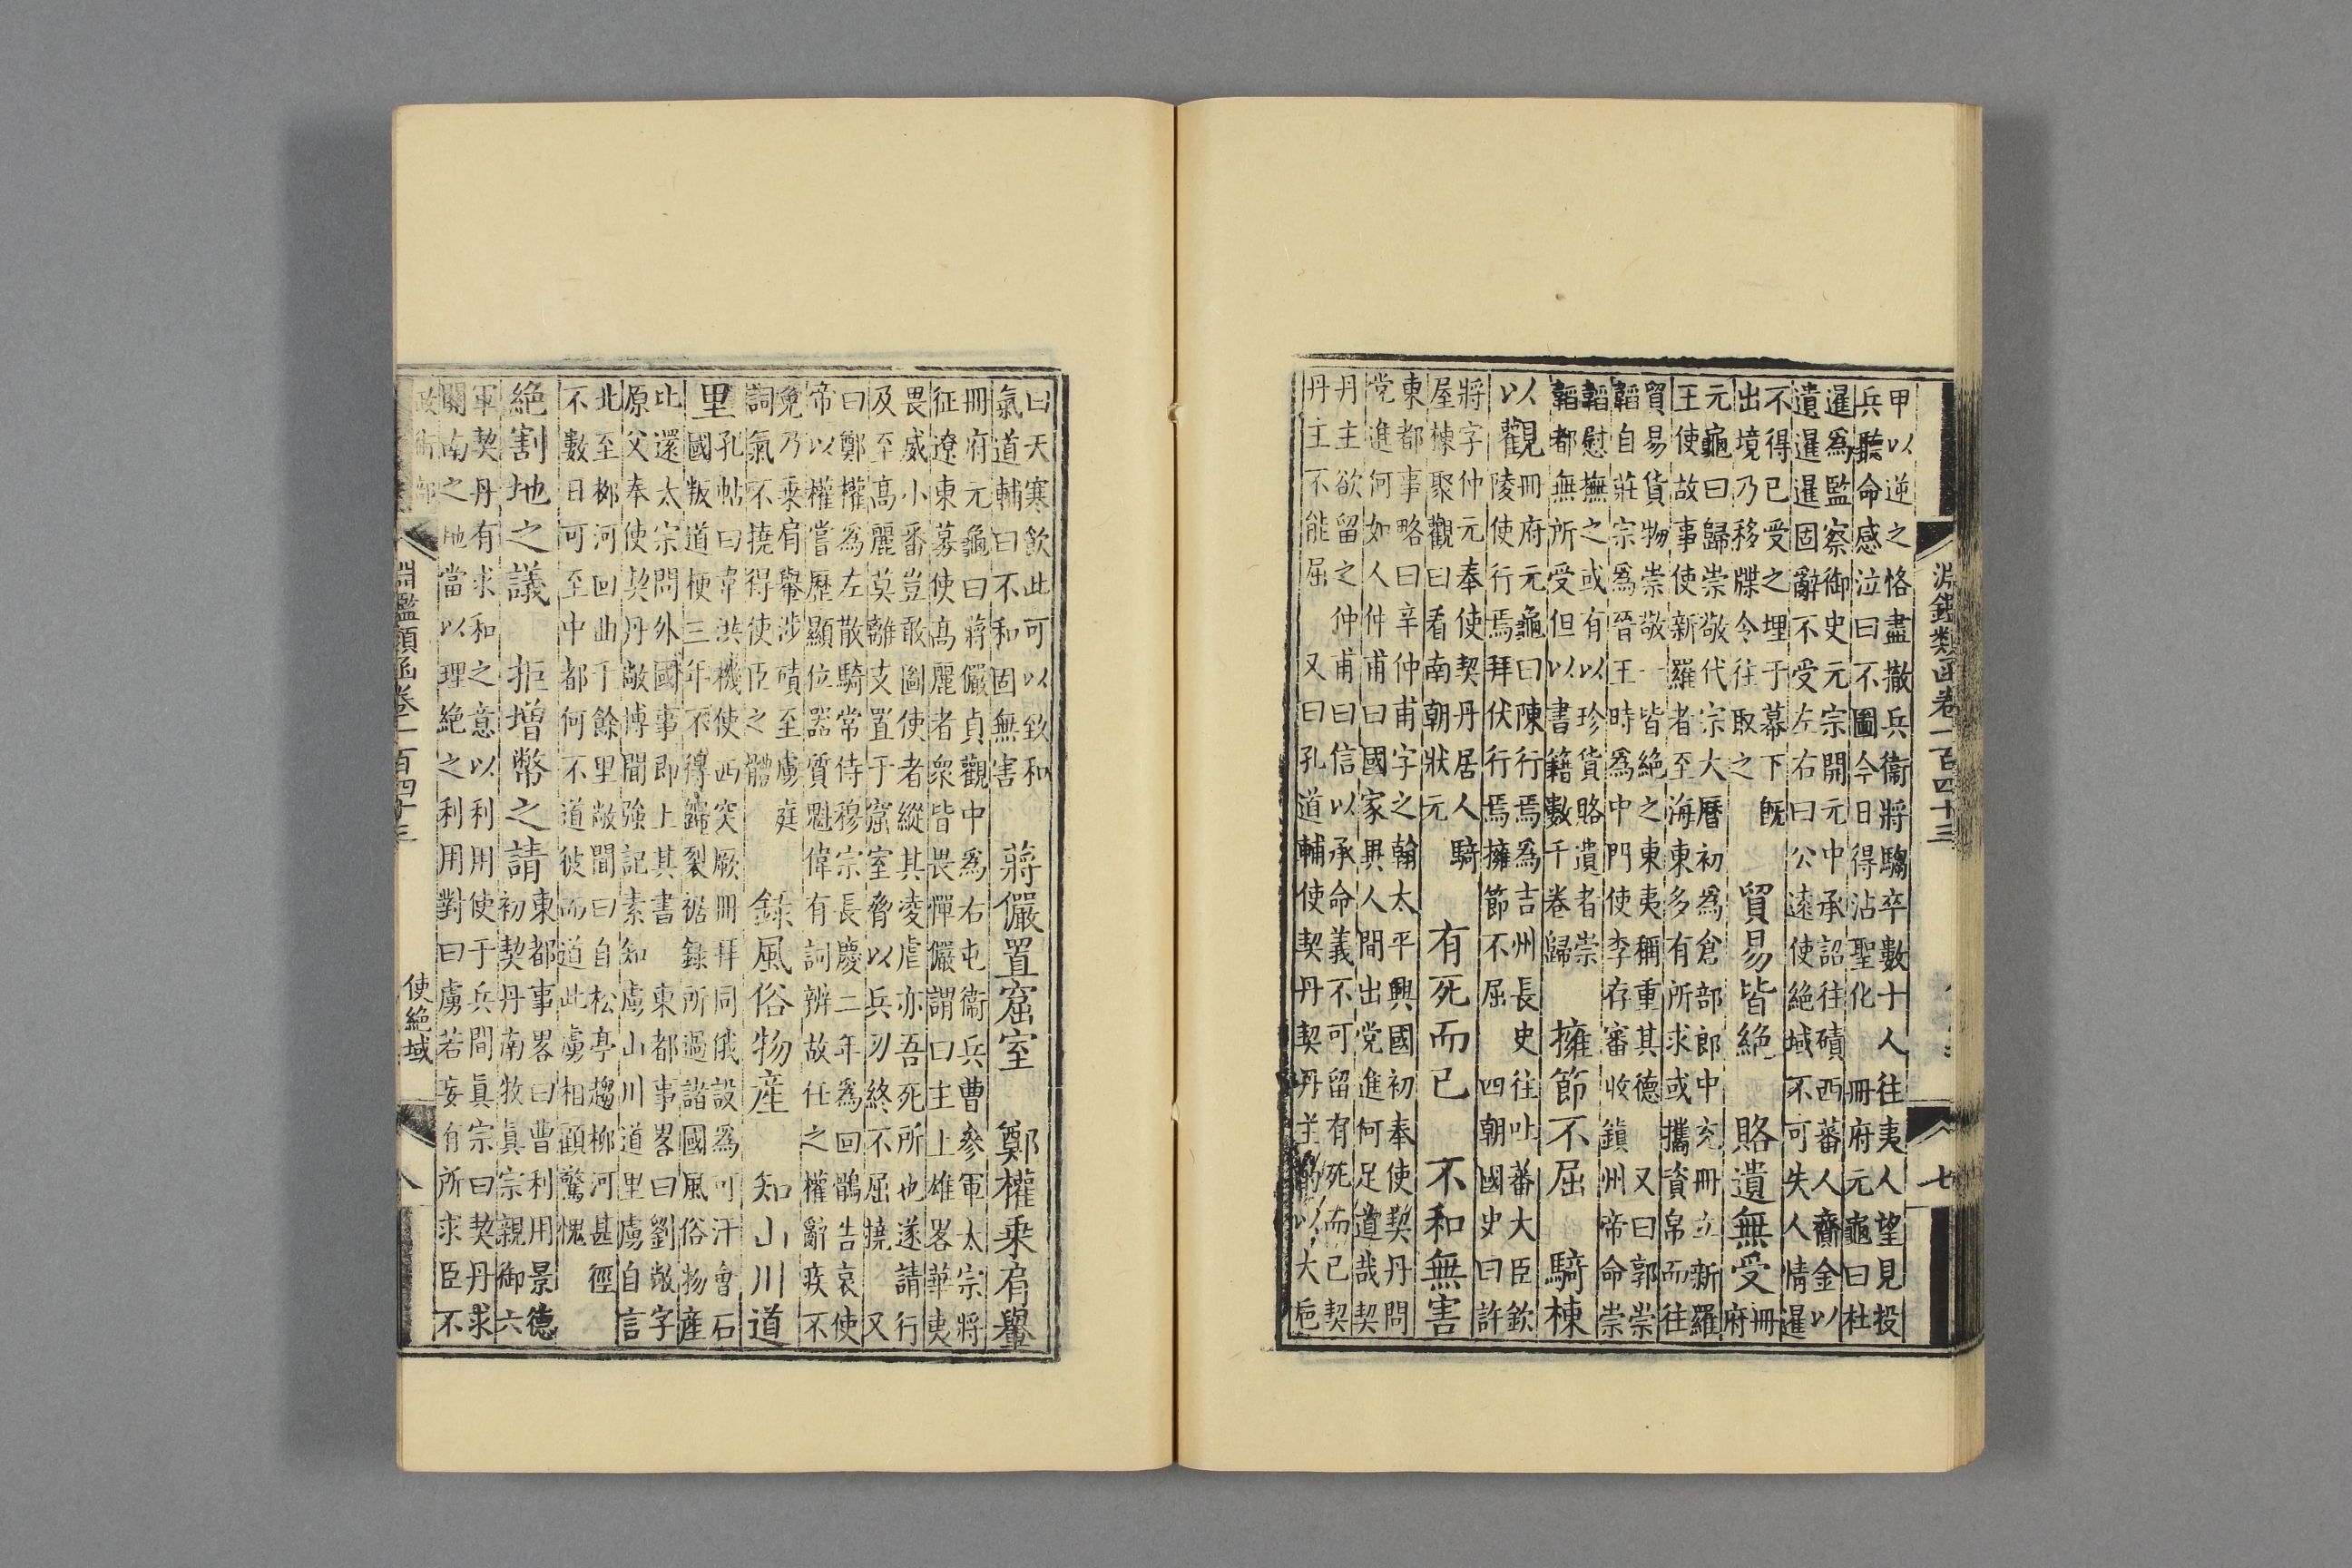 淵鑑類函卷一百四十三 七
甲以逆之恪盡撤兵衞將騶卒數十人往夷人望見投
兵聽命感泣曰不圖今日得沾聖化 冊府元龜曰杜
暹爲監察御史元宗開元中承詔往磧西蕃人齎金以
遺暹暹固辭不受左右曰公遠使絶域不可失人情暹
不得已受之埋于幕下旣
出境乃移牒令往取之
貿易皆絶 賂遺無受 冊府
元龜曰歸崇敬代宗大曆初爲倉部郎中充冊立新羅
王使故事使新羅者至海東多有所求或攜資帛而往
貿易貨物崇敬一皆絶之東夷稱重其德 又曰郭崇
韜自莊宗爲晉王時爲中門使李存審收鎮州帝命崇
韜慰撫之或有以珍貨賂遺者崇
韜都無所受但以書籍數千卷歸
擁節不屈 騎棟
以觀
冊府元龜曰陳行焉爲吉州長史往吐蕃大臣欽
陵使行焉拜伏行焉擁節不屈 四朝國史曰許
將字仲元奉使契丹居人騎
屋棟聚觀曰看南朝狀元
有死而已 不和無害
東都事略曰辛仲甫字之翰太平興國初奉使契丹問
党進何如人仲甫曰國家異人間出党進何足道哉契
丹主欲留之仲甫曰信以承命義不可留有死而已契
丹主不能屈 又曰孔道輔使契丹契丹主酌以大巵
曰天寒飲此可以致和
氣道輔曰不和固無害
蔣儼置窟室 鄭權乘肩轝
冊府元龜曰蔣儼貞觀中爲右屯衞兵曹參軍太宗將
征遼東募使高麗者衆皆畏憚儼謂曰主上雄畧華夷
畏威小番豈敢圖使者縱其凌虐亦吾死所也遂請行
及至高麗莫離支置于窟室脅以兵刃終不屈撓 又
曰鄭權爲左散騎常侍穆宗長慶二年爲回鶻告哀使
帝以權嘗歷顯位器質魁偉有詞辨故任之權辭疾不
免乃乘肩轝涉磧至虜庭
詞氣不撓得使臣之體
錄風俗物產 知山川道
里
孔帖曰韋洪機使西突厥冊拜同俄設爲可汗會石
國叛道梗三年不得歸裂裾錄所過諸國風俗物產
比還太宗問外國事卽上其書 東都事畧曰劉敞字
原父奉使契丹敞博聞強記素知虜山川道里虜自言
北至栁河回曲千餘里敞聞曰自松亭趨栁河甚徑
不數日可至中都何不道彼而道此虜相顧驚愧
絶割地之議 拒增幣之請
東都事畧曰曹利用景德
初契丹南牧眞宗親御六
軍契丹有求和之意以利用使于兵間眞宗曰契丹求
關南之地當以理絶之利用對曰虜若妄有所求臣不
淵鑑類函卷一百四十三 使絶域 八